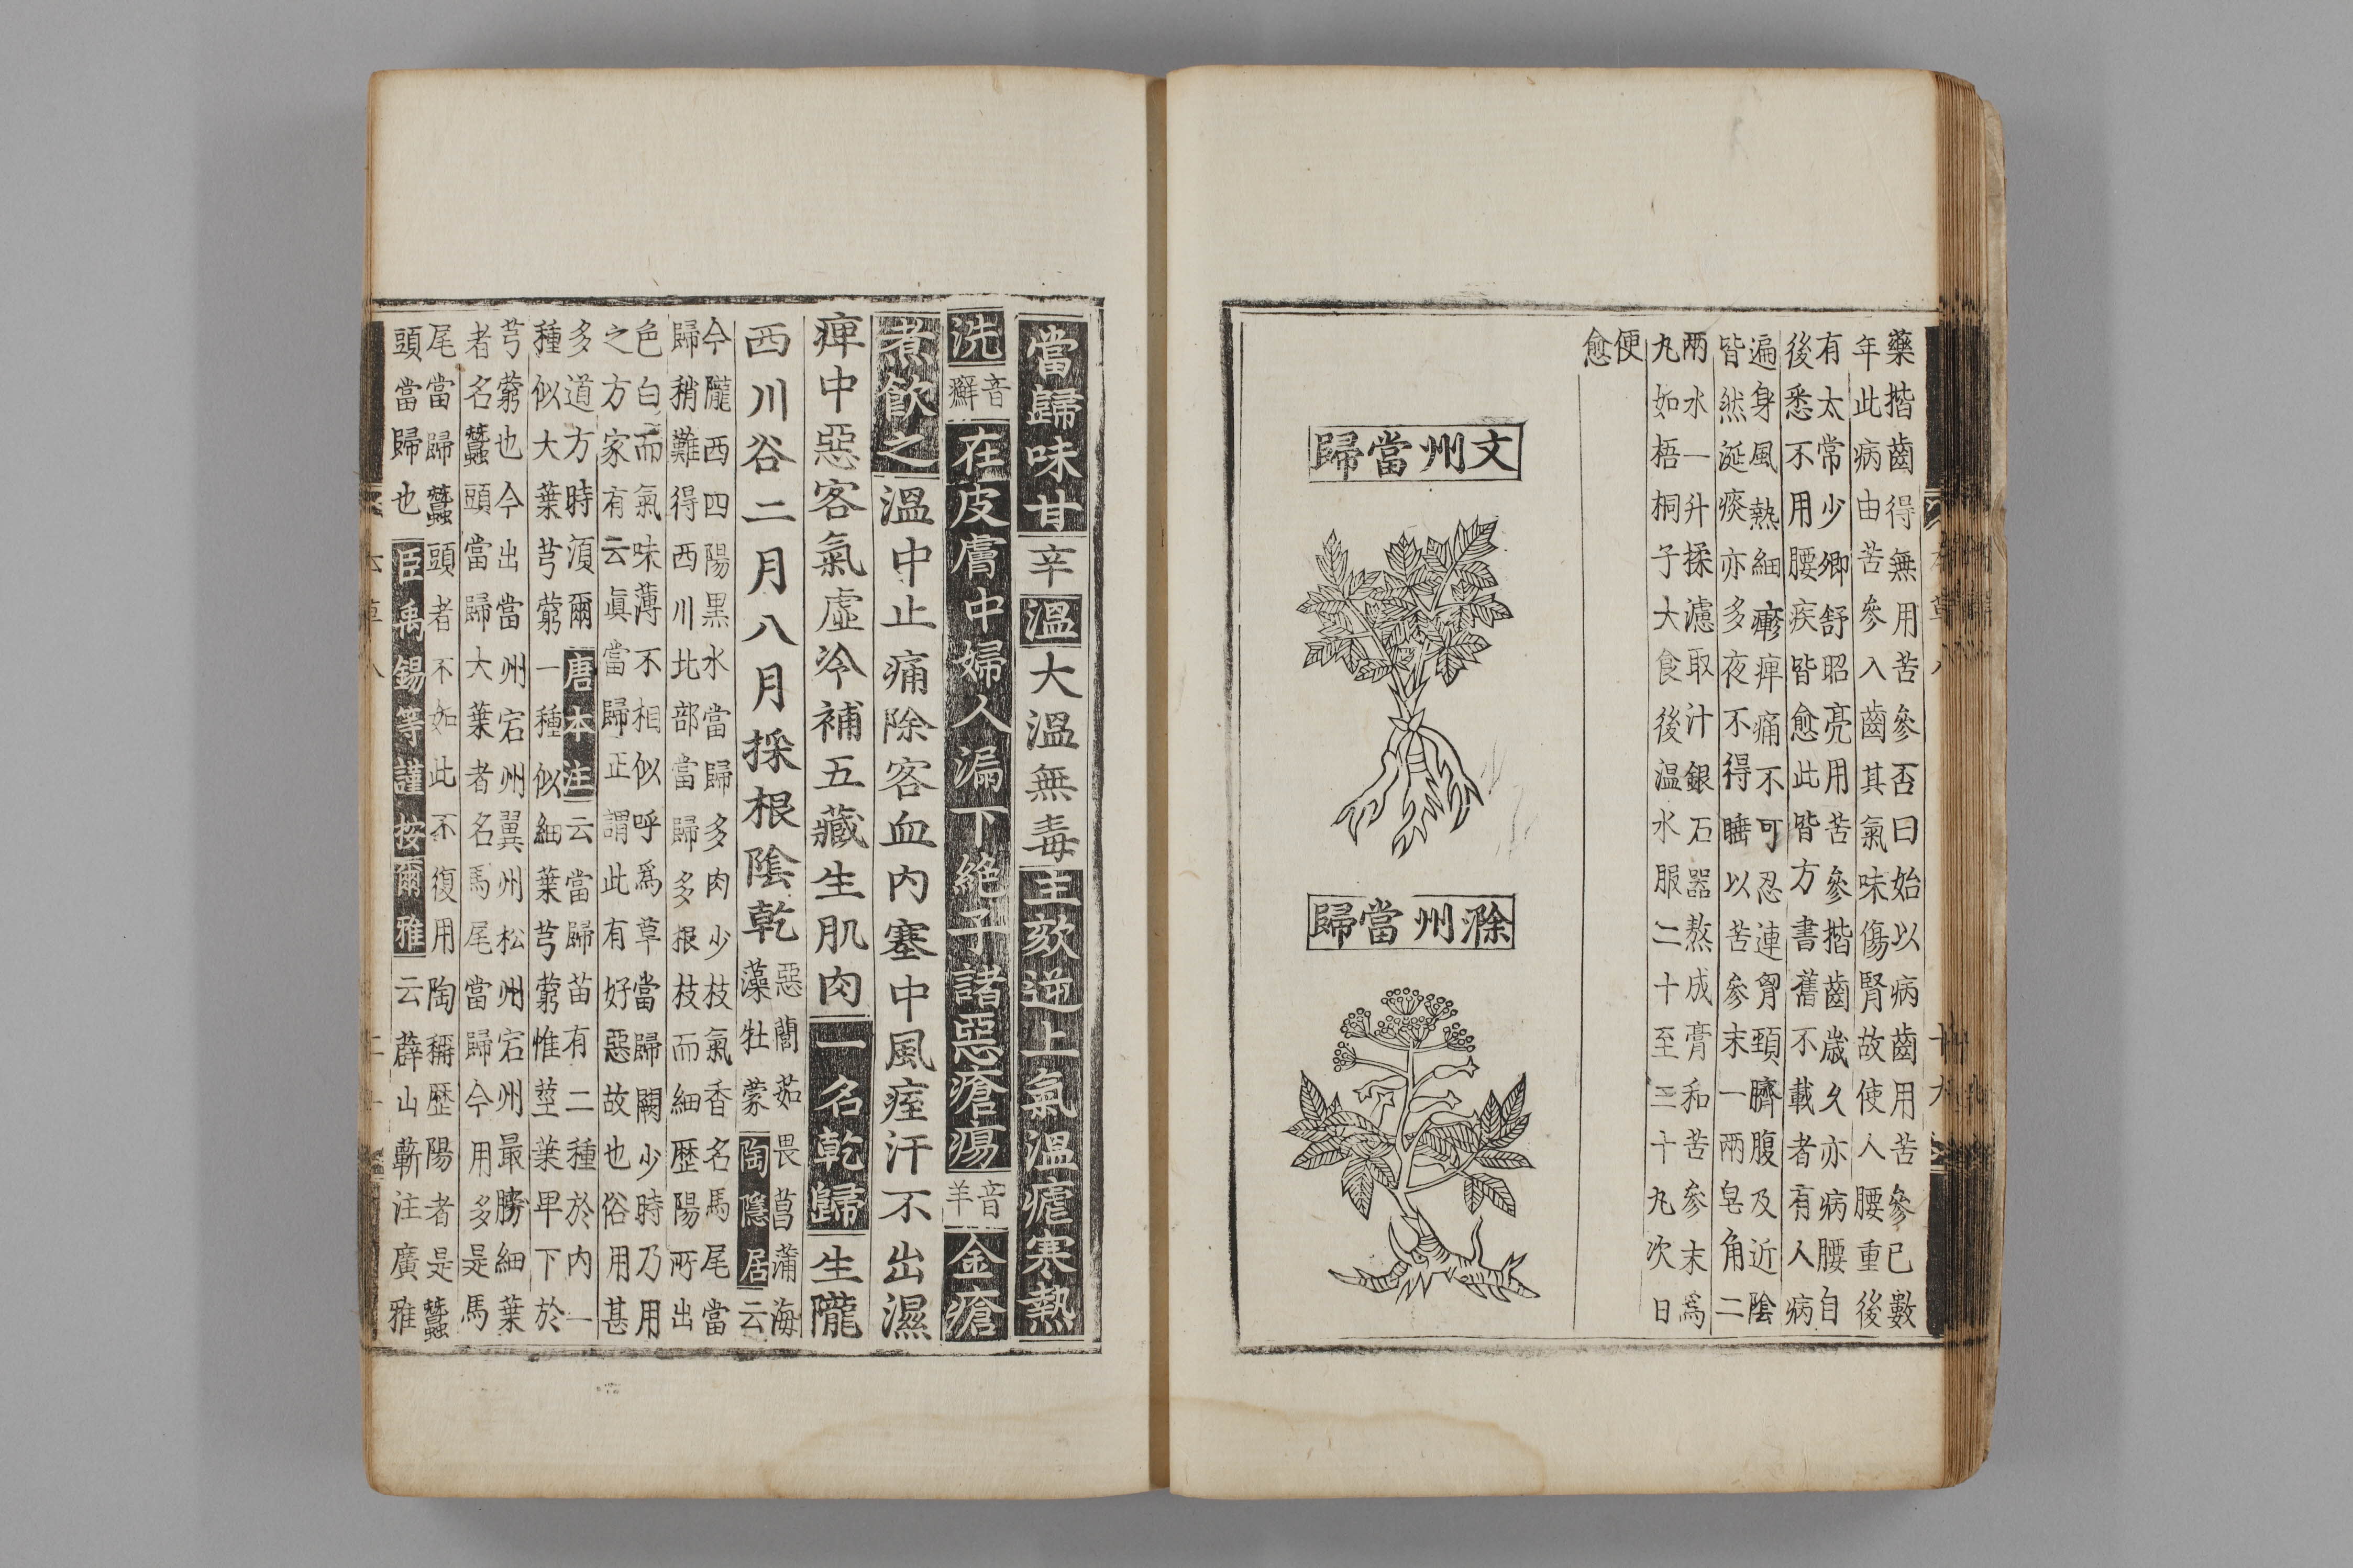 藥揩齒得無用苦參否曰始以病齒用苦參已數
年此病由苦參入齒其氣味傷腎故使人腰重後
有太常少卿舒昭亮用苦參揩齒歲久亦病腰自
後悉不用腰疾皆愈此皆方書舊不載者有人病
遍身風熱細瘮痺痛不可忍連胷頸臍腹及近陰
皆然涎痰亦多夜不得睡以苦參末一兩皂角二
兩水一升揉濾取汁銀石器熬成膏和苦參末爲
丸如梧桐子大食後温水服二十至三十丸次日
便
愈
文州當歸
滁州當歸
當歸味甘辛溫大溫無毒主欬逆上氣溫瘧寒熱
洗音癬在皮膚中婦人漏下絶子諸惡瘡瘍音羊金瘡
煮飮之溫中止痛除客血内塞中風痓汗不出濕
痺中惡客氣虛冷補五藏生肌肉一名乾歸生隴
西川谷二月八月採根陰乾惡䕡茹畏菖蒲海
藻牡蒙陶隱居云
今隴西四陽黑水當歸多肉少枝氣香名馬尾當
歸稍難得西川北部當歸多根枝而細歷陽所出
色白而氣味薄不相似呼爲草當歸闕少時乃用
之方家有云眞當歸正謂此有好惡故也俗用甚
多道方時湏爾唐本注云當歸苗有二種於内一
種似大葉芎藭一種似細葉芎藭惟莖葉卑下於
芎藭也今出當州宕州翼州松州宕州最勝細葉
者名蠶頭當歸大葉者名馬尾當歸今用多是馬
尾當歸蠶頭者不如此不復用陶稱歷陽者是蠶
頭當歸也臣禹錫等謹按爾雅云薜山蘄注廣雅
本草八